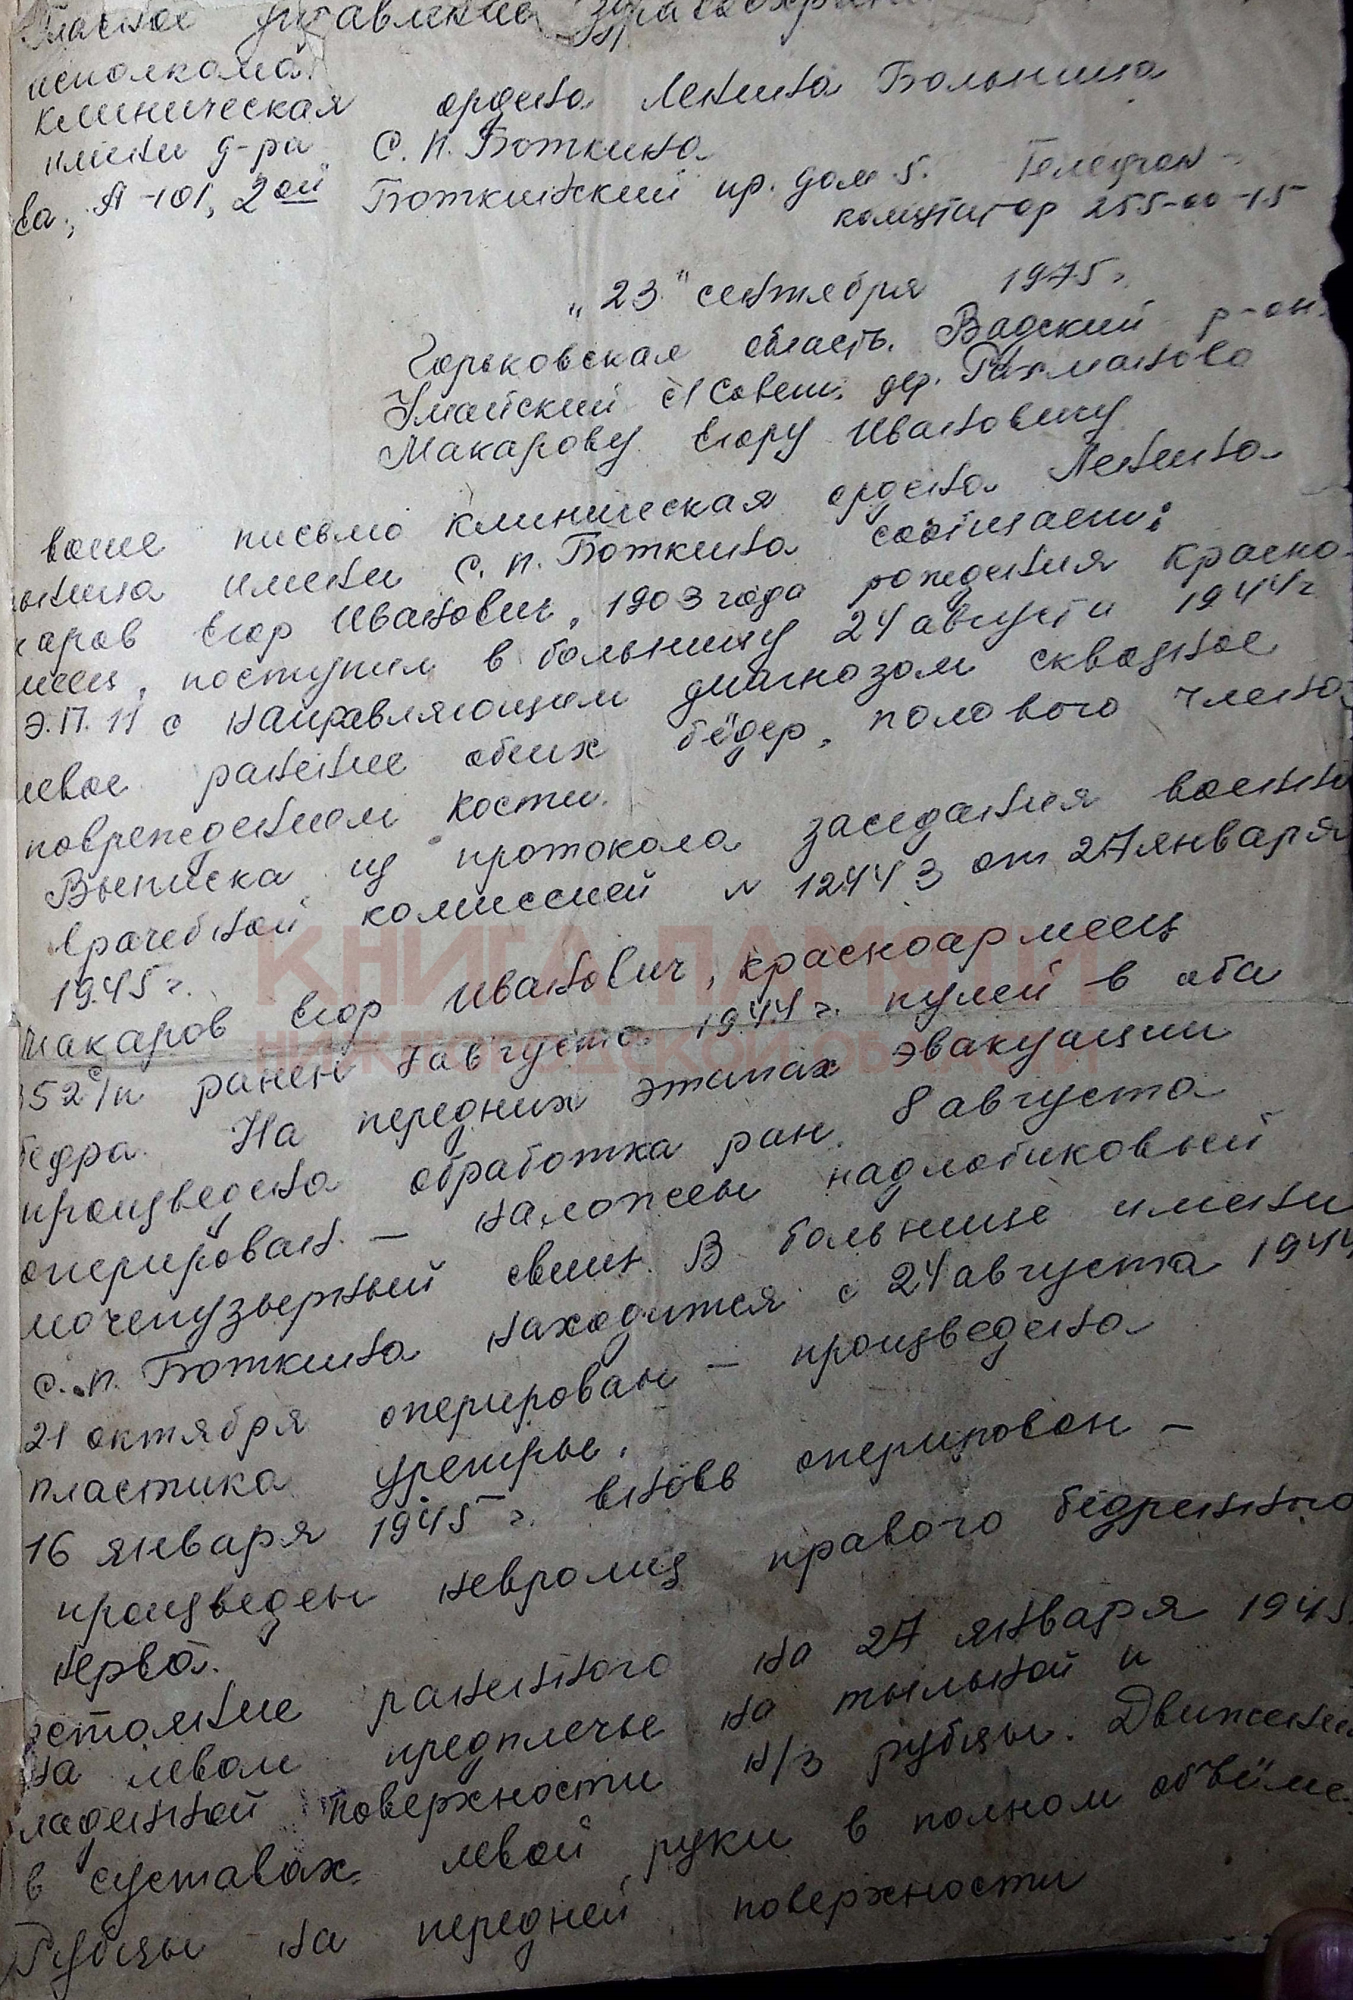 Главное управление
исполкома.
Клиническая ордена Ленина Больница
имени д-ра С. П. Боткина
ва, А-101, 2ой Боткинский пр. дом 5. Телефон -
коммутатор 255-00-15
"23" сентября 1975 г.
Горьковская область. Вадский р-он.
Умайский с/Совет. дер. Рахманово
Макарову Егору Ивановичу
ваше письмо Клиническая ордена Ленина
имени С. П. Боткина сообщает:
каров Егор Иванович, 1903 года рождения красно-
меец, поступил в больницу 24 августа 1944 г
Э.П. 11 с направляющим диагнозом сквозное
левое ранение обеих бёдер, полового члена
повреждением кости.
Выписка из протокола заседания военно
врачебной комиссией N 12443 от 27 января
1945 г.
Макаров Егор Иванович, красноармеец
352 с/п ранен 7 августа 1944 г. пулей в оба
бедра. На передних этапах эвакуации
произведена обработка ран. 8 августа
оперирован. — наложен надлобковый
мочепузырный свищ. В больнице имени
С. П. Боткина находится с 24 августа 1944
21 октября оперирован — произведена
пластика уретры.
16 января 1945 г. вновь оперирован —
произведен невролиз правого бедренного
нерва.
остояние раненного на 27 января 1945.
На левом предплечье на тыльной и
ладонной поверхности н/з рубцы. Движения
в суставах левой руки в полном объёме.
Рубцы на передней поверхности
КНИГА ПАМЯТИ
НИЖЕГОРОДСКОЙ ОБЛАСТИ